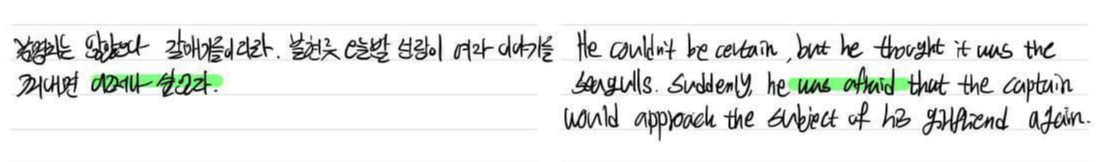 갈매기들이리라. 불현듯 오늘밤 여자 이야기를
꺼내면 어쩌나 싶었다.
He couldn't be certain, but he thought it was the
seagulls. Suddenly, he was afraid that the captain
would approach the subject of his girlfriend again.